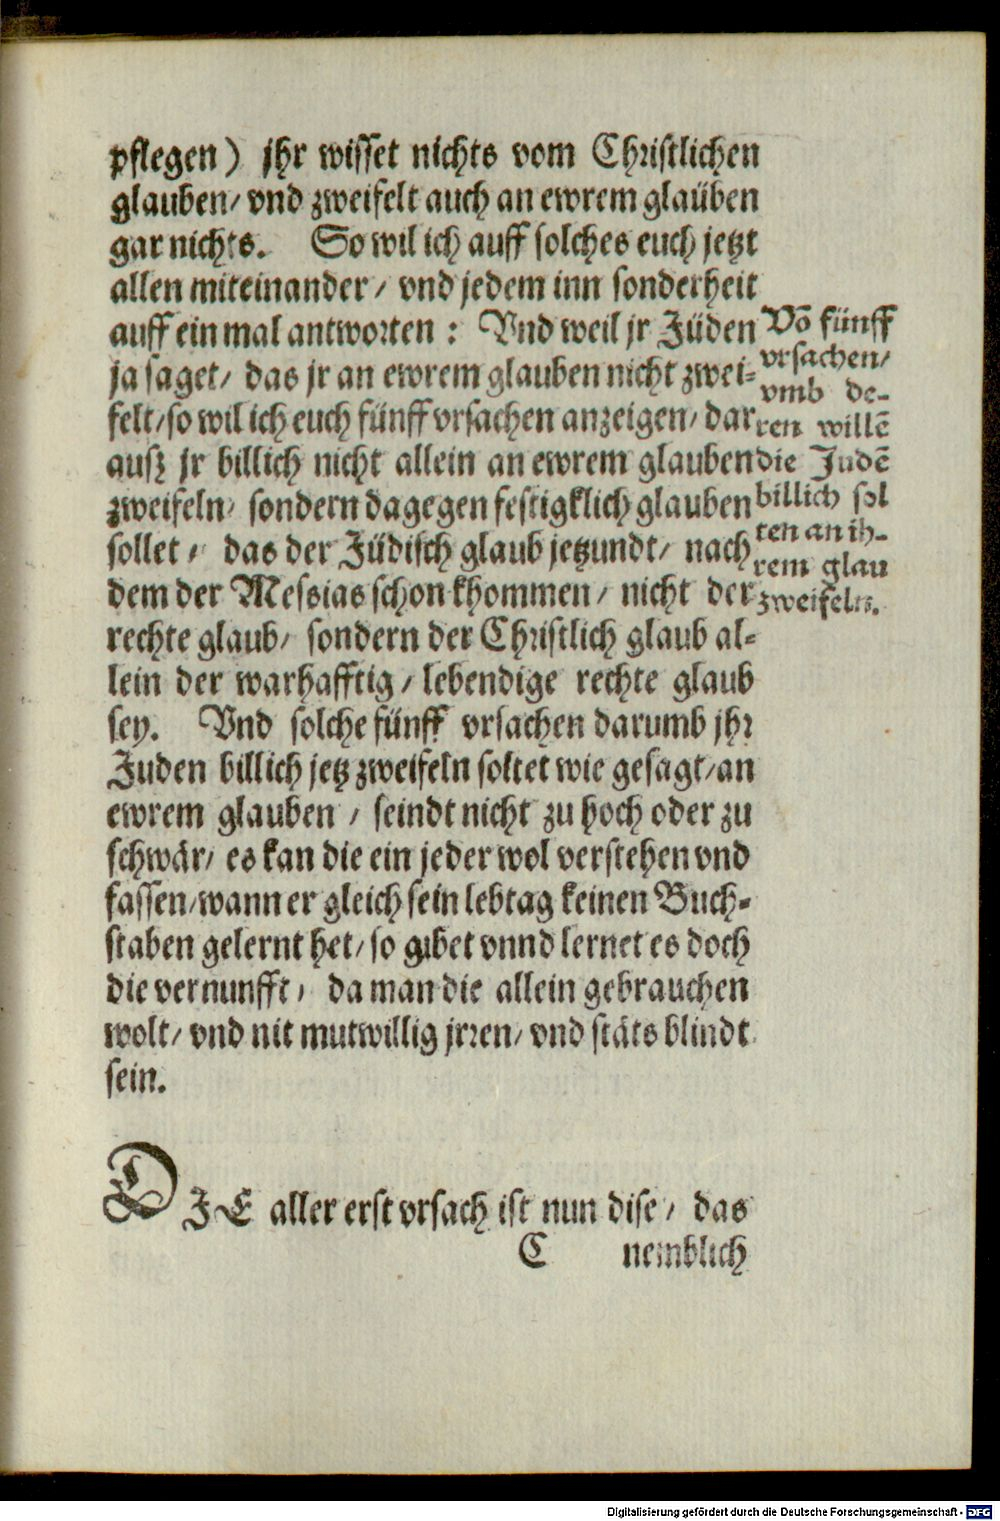 pflegen) jhr wisset nichts vom Christlichen
glauben/ vnd zweifelt auch an ewrem glaüben
gar nichts. So wil ich auff solches euch jetzt
allen miteinander/ vnd jedem inn sonderheit
auff ein mal antworten: Vnd weil jr Jüden
ja saget/ das jr an ewrem glauben nicht zwei-
felt/ so wil ich euch fünff vrsachen anzeigen/ dar
ausz jr billich nicht allein an ewrem glauben
zweifeln/ sondern dagegen festigklich glauben
sollet/ das der Jüdisch glaub jetzundt/ nach
dem der Messias schon khommen/ nicht der
rechte glaub/ sondern der Christlich glaub al-
lein der warhafftig/ lebendige rechte glaub
sey. Vnd solche fünff vrsachen darumb jhr
Juden billich jetz zweifeln soltet wie gesagt/ an
ewrem glauben/ seindt nicht zu hoch oder zu
schwär/ es kan die ein jeder wol verstehen vnd
fassen/ wann er gleich sein lebtag keinen Buch-
staben gelernt het/ so gibet vnnd lernet es doch
die vernunfft/ da man die allein gebrauchen
wolt/ vnd nit mutwillig jrren/ vnd stäts blindt
sein.
Võ fünff
vrsachen/
vmb de-
ren willẽ
die Judẽ
billich sol
ten an ih-
rem glau
zweifeln.
DJE aller erst vrsach ist nun dise/ das
C nemblich
Digitalisierung gefördert durch die Deutsche Forschungsgemeinschaft - DFG